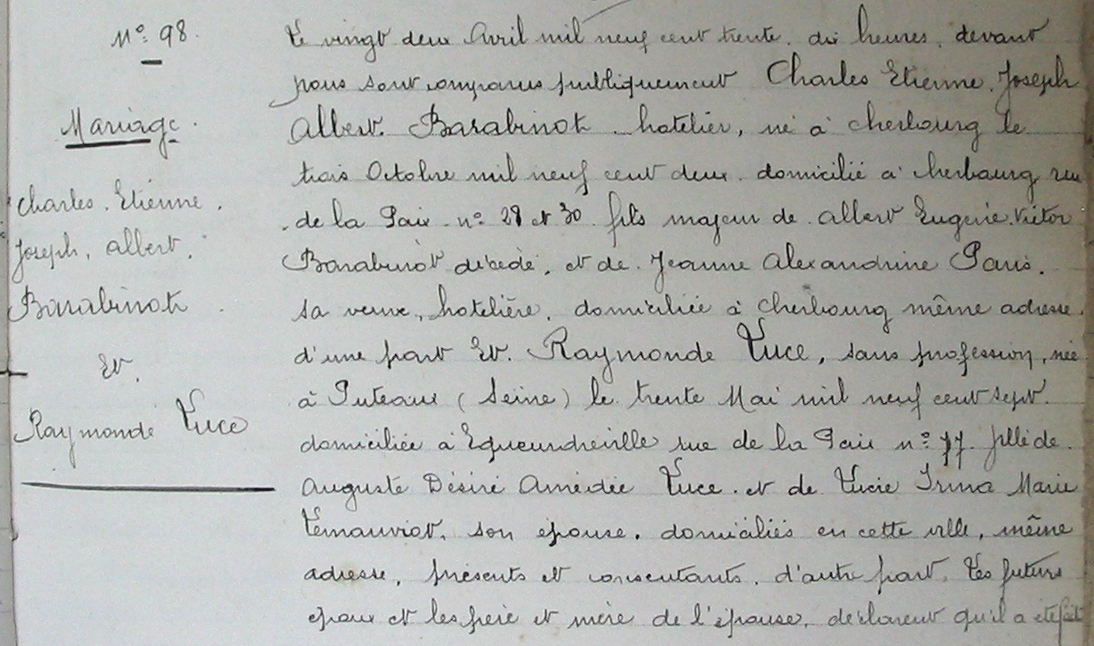 N° 98.
Mariage.
Charles. Etienne.
Joseph. Albert.
Barabinot
Et.
Raymonde Luce
Le vingt deux Avril mil neuf cent trente. dix heures. devant
nous sont comparus publiquement Charles Etienne. Joseph
Albert. Barabinot. hotelier, né à Cherbourg le
trois Octobre mil neuf cent deux. domicilié à Cherbourg rue
de la Paix. n° 28 et 30 fils majeur de Albert Eugène. Victor
Barabinot décédé, et de Jeanne Alexandrine Paris.
sa veuve, hotelière, domiciliée à Cherbourg même adresse.
d'une part Et. Raymonde Luce, sans profession, née
à Puteaux (Seine) le trente Mai mil neuf cent sept.
domiciliée à Equeurdreville rue de la Paix n° 77 fille de
Auguste Désiré Amédée Luce. et de Lucie Irma Marie
son épouse. domiciliés en cette ville, même
adresse, présents et consentants. d'autre part. Les futurs
époux et les père et mère de l'épouse, déclarent qu'il a été fait